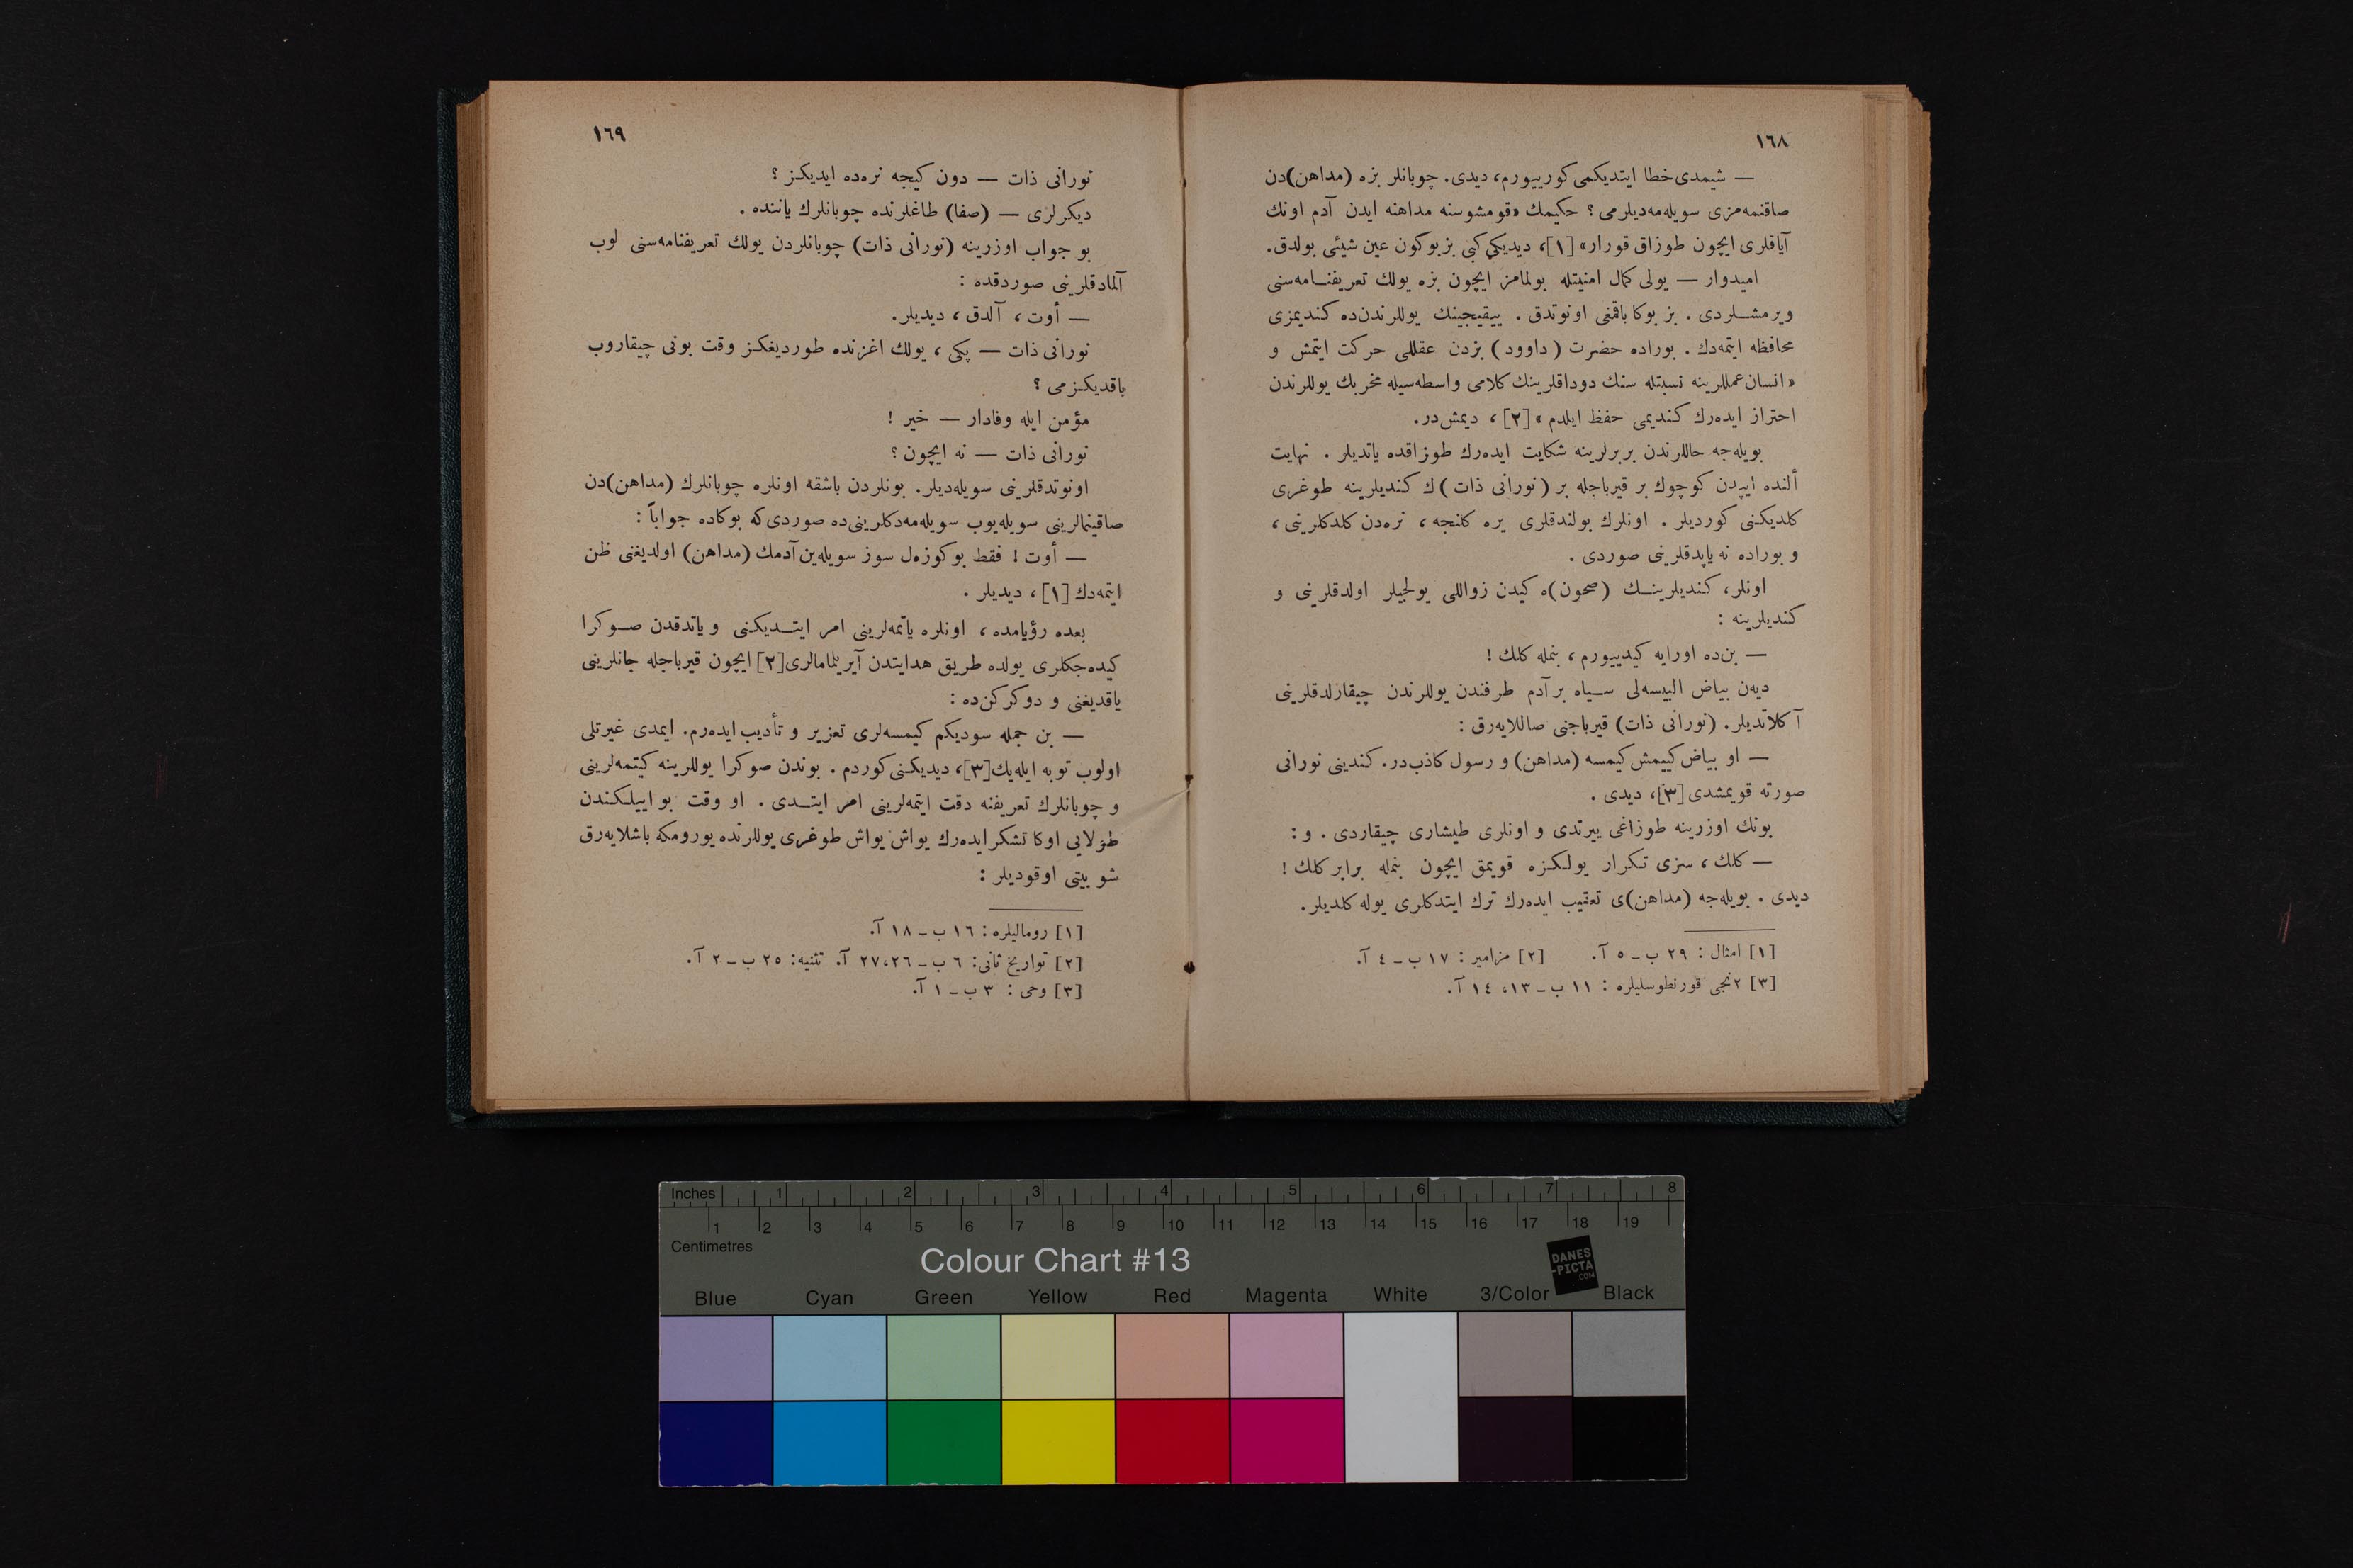 ١٦٨
— شيمدی خطا ايتديكمی كورييورم، ديدی. چوبانلر بزه (مداهن)دن
صاقنمه‌مزی سويله‌مه‌ديلرمی ؟ حكيمك «قومشوسنه مداهنه ايدن آدم اونك
آياقلری ايچون طوزاق قورار» [١]، ديديكی كبی بز بوكون عين شيئی بولدق.
اميدوار — يولی كمال امنيتله بولمامز ايچون بزه يولك تعريفنـامه‌سنی
ويرمشـلردی . بز بوكا باقمغی اونوتدق . ييقيجينك يوللرندن‌ده كنديمزی
محافظه ايتمه‌دك . بوراده حضرت (داوود) بزدن عقللی حركت ايتمش و
«انسان عمللرينه نسبتله سنك دوداقلرينك كلامی واسطه‌سيله مخربك يوللرندن
احتراز ايده‌رك كنديمی حفظ ايلدم» [٢] ، ديمش‌در.
بويله‌جه حاللرندن بربرلرينه شكايت ايده‌رك طوزاقده ياتديلر . نهايت
ألنده ايپدن كوچوك بر قيرباجله بر (نورانی ذات)ك كنديلرينه طوغری
كلديكنی كورديلر . اونلرك بولندقلری يره كلنجه ، نره‌دن كلدكلرينی ،
و بوراده نه ياپدقلرينی صوردی .
اونلر، كنديلرينـك (صحون)ه كيدن زواللی يولجيلر اولدقلرينی و
كنديلرينه :
— بن‌ده اورايه كيدييورم ، بنمله كلك !
ديه‌ن بياض البيسه‌لی سـياه بر آدم طرفندن يوللرندن چيقارلدقلرينی
آكلاتديلر. (نورانی ذات) قيرباجنی صاللايه‌رق :
— او بياض كييمش كيمسه (مداهن) و رسول كاذب‌در. كندينی نورانی
صورته قويمشدی [٣]، ديدی .
بونك اوزرينه طوزاغی ييرتدی و اونلری طيشاری چيقاردی . و :
— كلك ، سزی تكرار يولـكزه قويمق ايچون بنمله برابر كلك !
ديدی . بويله‌جه (مداهن)ی تعقيب ايده‌رك ترك ايتدكلری يوله كلديلر.
[١] امثال : ٢٩ ب ــ ٥ آ. [٢] مزامير : ١٧ ب ــ ٤ آ.
[٣] ٢نجی قورنطوسليلره : ١١ ب ــ ١٣، ١٤ آ.
١٦٩
نورانی ذات — دون كيجه نره‌ده ايديكـز ؟
ديكرلری — (صفا) طاغلرنده چوبانلرك ياننده .
بو جواب اوزرينه (نورانی ذات) چوبانلردن يولك تعريفنامه‌سنی لوب
آلمادقلرينی صوردقده :
— أوت ، آلدق ، ديديلر.
نورانی ذات — پكی ، يولك اغزنده طورديغكـز وقت بونی چيقاروب
باقديكـزمی ؟
مؤمن ايله وفادار — خير !
نورانی ذات — نه ايچون ؟
اونوتدقلرينی سويله‌ديلر. بونلردن باشقه اونلره چوبانلرك (مداهن)دن
صاقينمالرينی سويله‌يوب سويله‌مه‌دكلرينی‌ده صوردی كه بوكاده جواباً :
— أوت ! فقط بو كوزه‌ل سوز سويله‌ين آدمك (مداهن) اولديغنی ظن
ايتمه‌دك [١] ، ديديلر .
بعده رؤيامده ، اونلره ياتمه‌لرينی امر ايتـديكنی و ياتدقدن صـوكرا
كيده‌جكلری يولده طريق هدايتدن آيريلمامالری [٢] ايچون قيرباجله جانلرينی
ياقديغنی و دوكركن‌ده :
— بن جمله سوديكم كيمسه‌لری تعزير و تأديب ايده‌رم. ايمدی غيرتلی
اولوب توبه ايله‌يك [٣]، ديديكنی كوردم . بوندن صوكرا يوللرينه كيتمه‌لرينی
و چوبانلرك تعريفنه دقت ايتمه‌لرينی امر ايتـدی . او وقت بو اييلـكندن
طولايی اوكا تشكر ايده‌رك يواش يواش طوغری يوللرنده يورومكه باشلايه‌رق
شو بيتی اوقوديلر :
[١] روماليلره : ١٦ ب ــ ١٨ آ.
[٢] تواريخ ثانی : ٦ ب ــ ٢٦،٢٧ آ. تثنيه : ٢٥ ب ــ ٢ آ.
[٣] وحی : ٣ ب ــ ١ آ.
Inches 1 2 3 4 5 6 7 8
1 2 3 4 5 6 7 8 9 10 11 12 13 14 15 16 17 18 19
Centimetres
Colour Chart #13
DANES
-PICTA
.COM
Blue Cyan Green Yellow Red Magenta White 3/Color Black